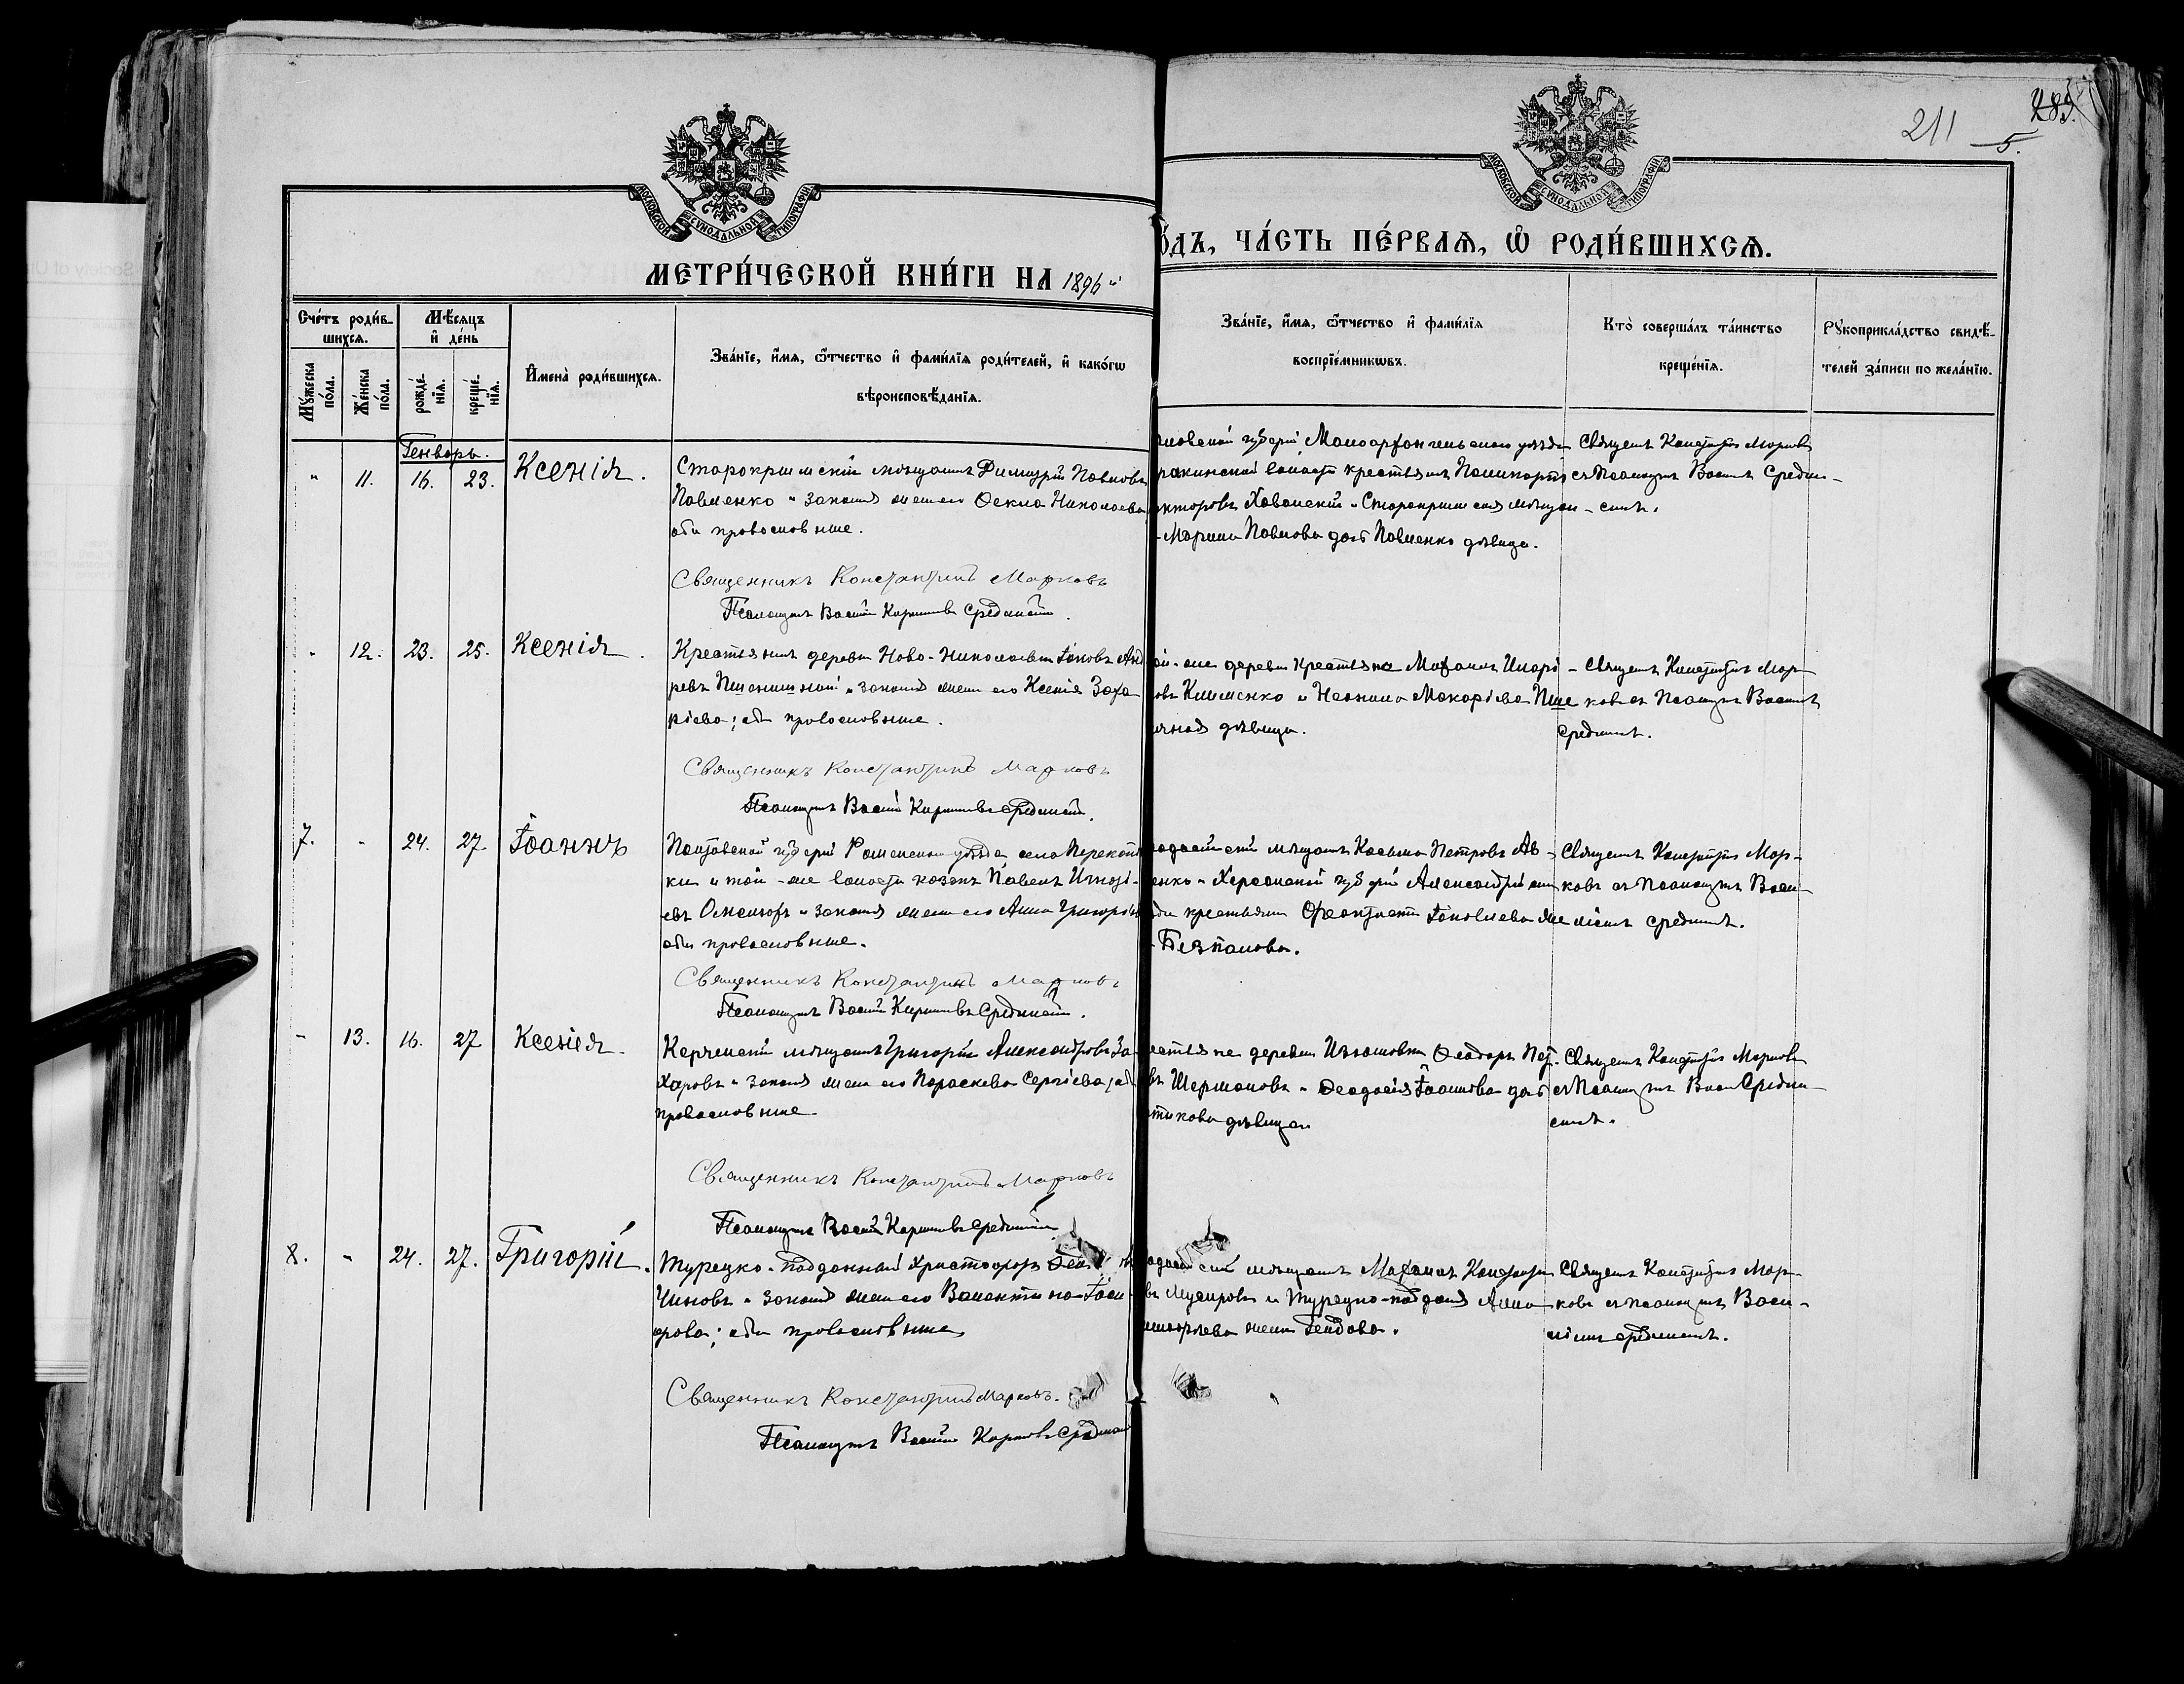 211
283.
5.
МОСКОВСКОЙ СУНОДАЛЬНОЙ ТИПОГРАФІИ
МОСКОВСКОЙ СУНОДАЛЬНОЙ ТИПОГРАФІИ
МЕТРИ́ЧЕСКОЙ КНИ́ГИ НА 1896
О́ДЪ, ЧА́СТЬ ПЕ́РВАЯ, Ѡ РОДИ́ВШИХСЯ.
Сче́тъ роди́в-
шихся.
Мѣ́сяцъ
и҆ де́нь
Му́жеска по́ла.
Же́нска по́ла.
рожде́-
нія.
креще́-
нія.
И҆мена̀ роди́вшихся.
Зва́ніе, и҆́мя, ѻ҆́тчество и҆ фами́лія роди́телей, и҆ како́гѡ
вѣроисповѣ́данія.
Зва́ніе, и҆́мя, ѻ҆́тчество и҆ фами́лія
воспріе́мникѡвъ.
Кто̀ соверша́лъ та́инство
креще́нія.
Рꙋкоприкла́дство свидѣ́-
телей за́писи по жела́нію.
Генварь.
" 11. 16. 23. Ксенія.
Старокрымскій мѣщанинъ Димитрій Павловъ
Павленко и законная жена его Ѳекла Николаева
оба православные.
Священникъ Константинъ Марковъ
Псаломщикъ Василій Кирилловъ Срединскій.
губерніи, Малоархангельскаго уѣзда
волости крестьянинъ Поликарпъ
Хованскій и Старокрымская мѣщан-
Марина Павлова дочь Павленко дѣвица.
Священ. Константинъ Марковъ
съ Псаломщ. Васил. Средин-
скимъ.
" 12. 23. 25. Ксенія.
Крестьянинъ деревни Ново-Николаевки Іаковъ Анд
ревъ Пшеничный и законная жена его Ксенія Заха
ріева; оба православные.
Священникъ Константинъ Марковъ
Псаломщикъ Василій Кирилловъ Срединскій.
ой-же деревни крестьяне Михаилъ Иларі-
овъ Клименко и Неонила Макаріева Пше
ичная дѣвица.
Священ. Константинъ Мар-
ковъ съ Псаломщ. Васил.
Срединск.
7. - 24. 27. Іоаннъ
Полтавской губерніи Роменскаго уѣзда села Перекопов
ки и той-же волости козакъ Павелъ Игнаті-
евъ и законная жена его Анна Григорьева
оба православные.
Священникъ Константинъ Марковъ
Псаломщикъ Василій Кирилловъ Срединскій.
одосійскій мѣщанинъ Косьма Петровъ Ав-
енко и Херсонской губерніи Александрійскаго
уѣзда крестьянка Іаковлева же
Безпалова.
Священ. Константинъ Мар-
ковъ съ Псаломщ. Васи-
ліемъ Срединск.
- 13. 16. 27 Ксенія.
Керченскій мѣщанинъ Григорій Александровъ За-
харовъ и законная жена его Параскева Сергіева; оба
православные.
Священникъ Константинъ Марковъ
Псаломщикъ Василій Кирилловъ Срединскій.
естьяне деревни Изюмовки Ѳеодоръ Пет-
въ Шермановъ и Ѳеодосія Іоаннова дочь
тикова дѣвица.
Священ. Константинъ Марковъ
съ Псаломщ. Васил. Средин-
скимъ.
8. - 24. 27. Григорій.
Турецко-подданный Христофоръ
Чиновъ и законная жена его Валентина
; оба православные
Священникъ Константинъ Марковъ.
Псаломщикъ Василій Кирилловъ Срединскій
одосійскій мѣщанинъ Михаилъ Констант
въ и Турецко-подданная Анна
жена
Священ. Константинъ Мар-
ковъ съ псаломщ. Васи-
ліемъ Срединск.